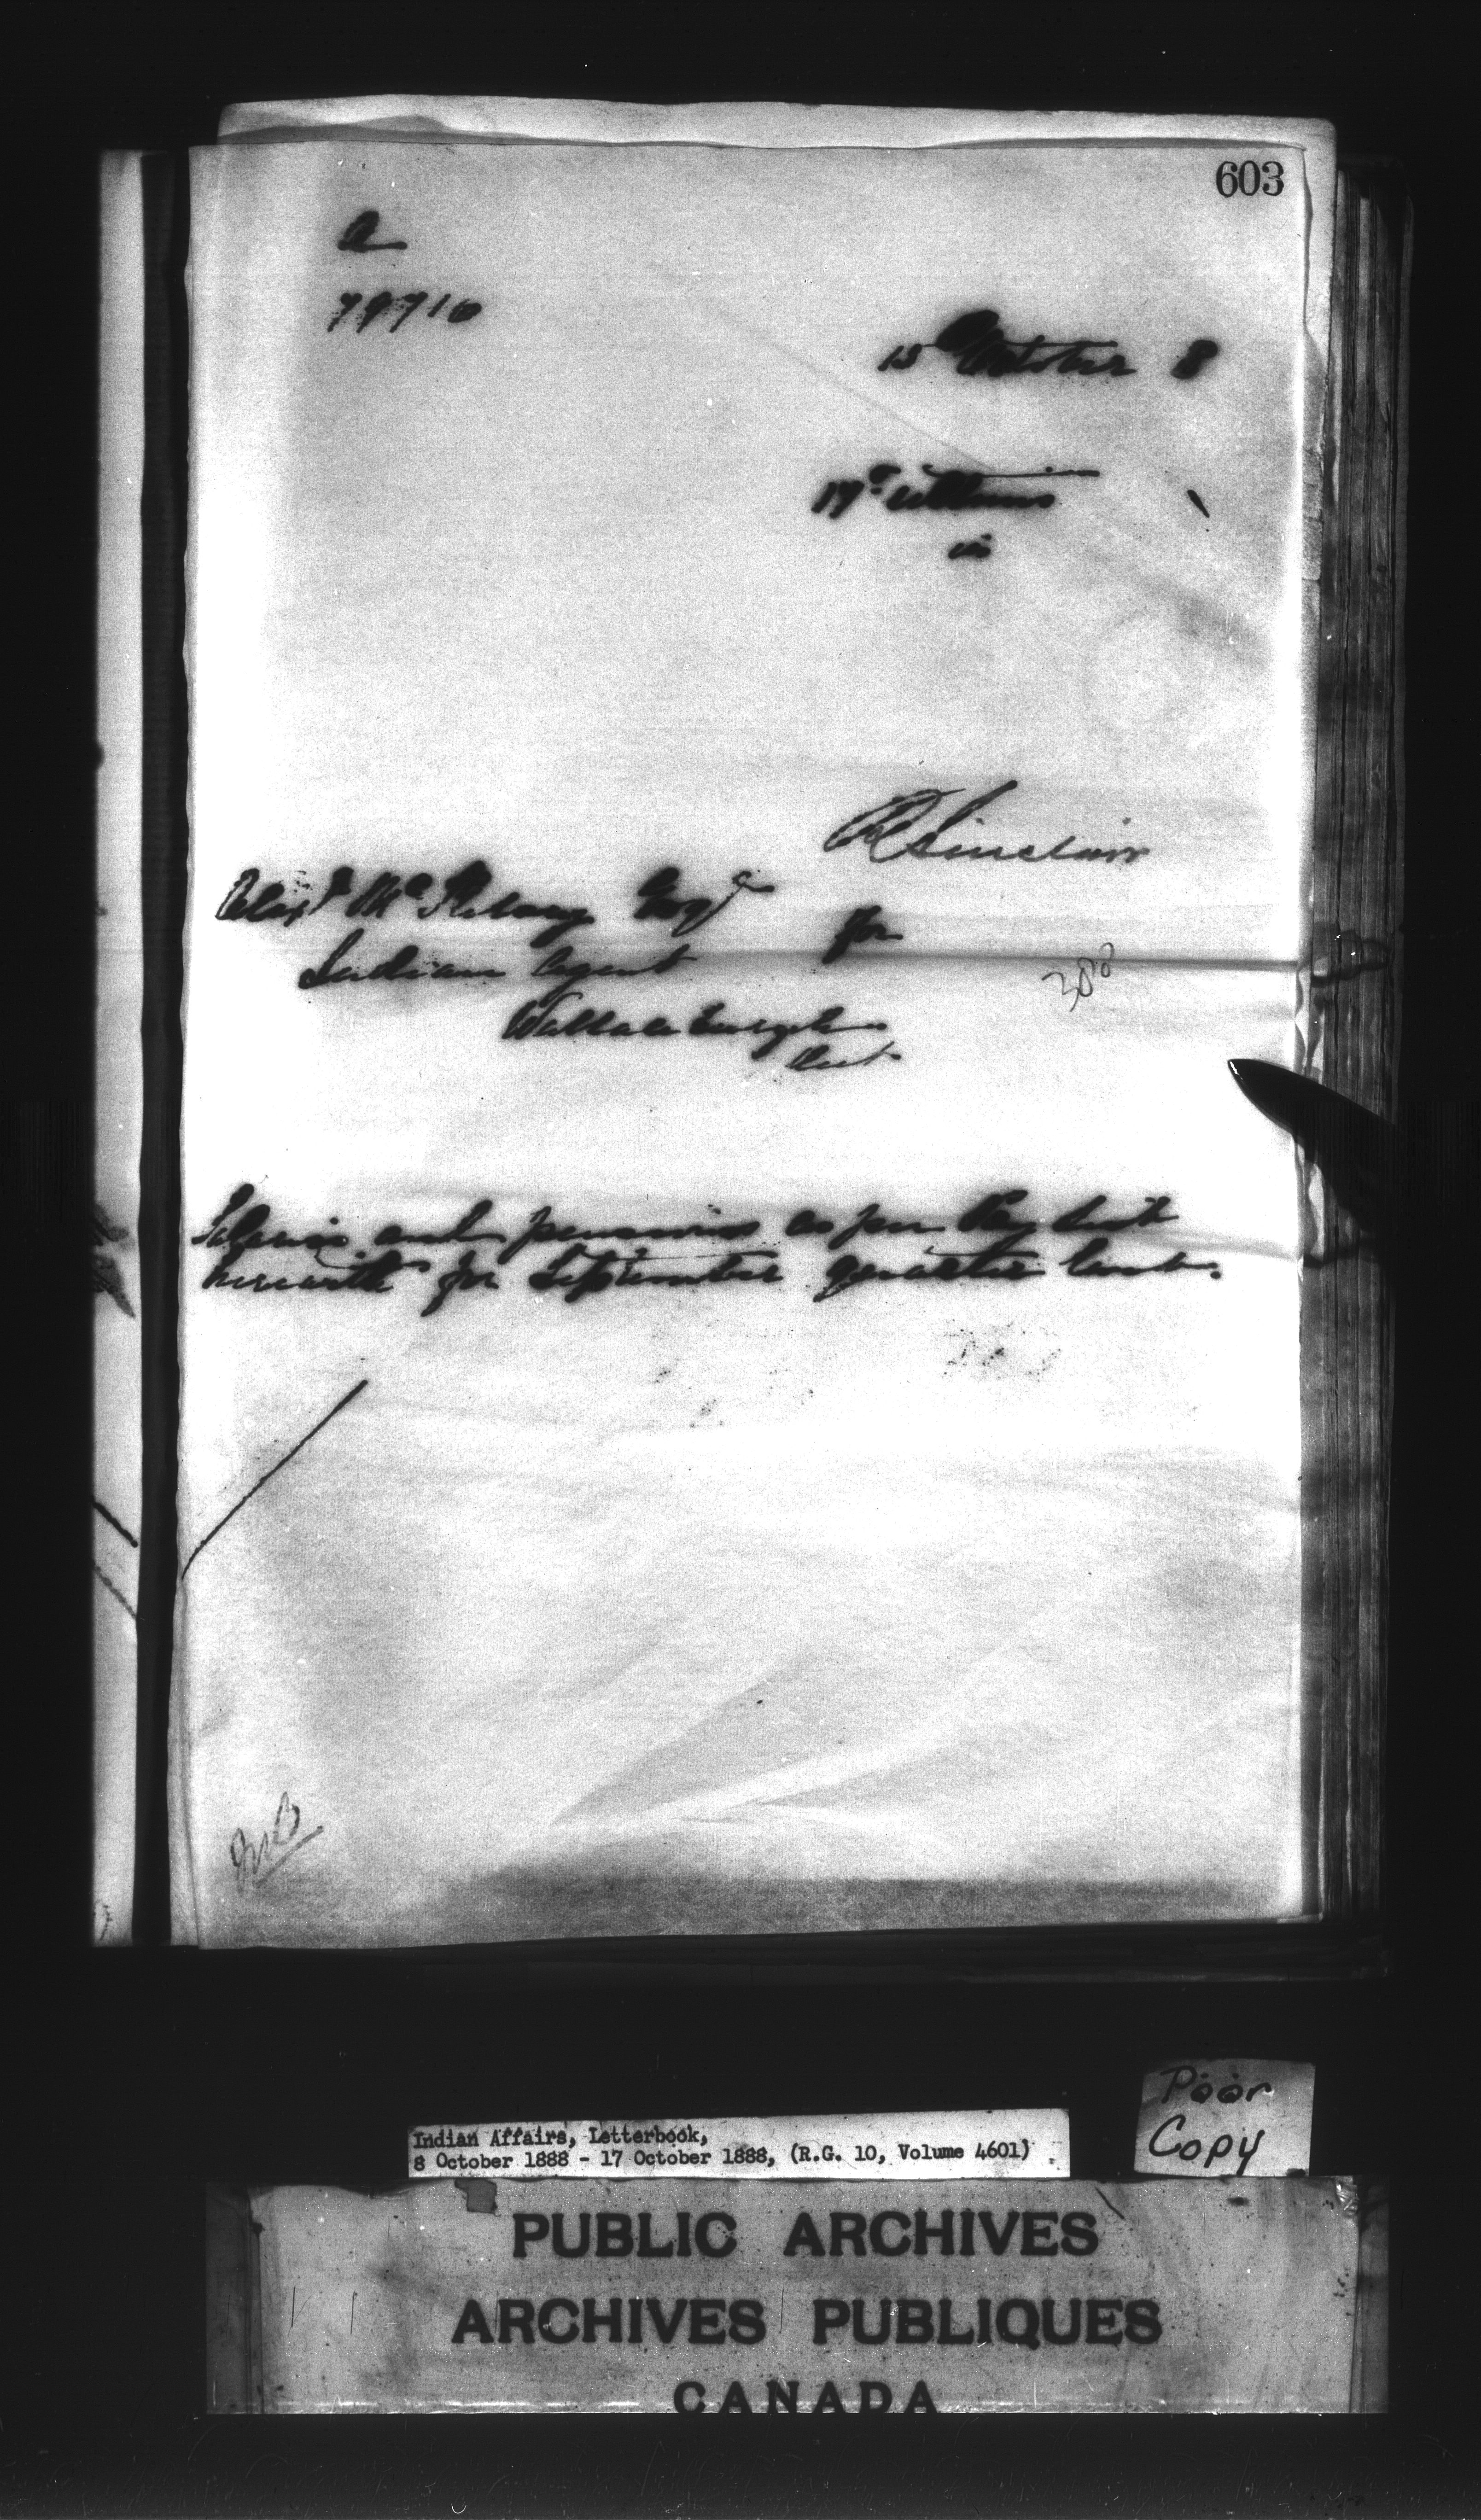 603
A
79716
15 October 8
17th Ultimo
in
R Sinclair
Alexr McKelvey Esqr
for
Indian Agent
388
Wallaceburgh
Ont
Salaries and pensions as per Pay list
herewith for September quarter last.
Indian Affairs, Letterbook,
8 October 1888 - 17 October 1888, (R.G. 10, Volume 4601)
Poor
Copy
PUBLIC ARCHIVES
ARCHIVES PUBLIQUES
CANADA